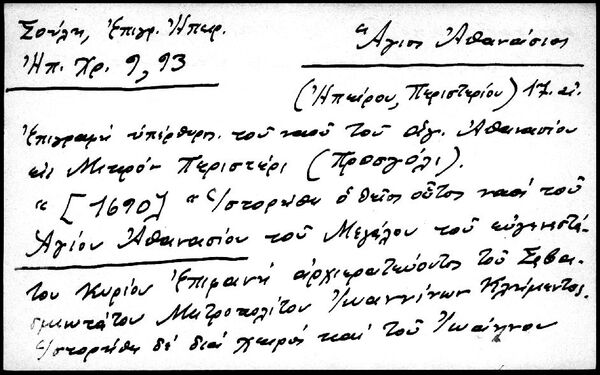 Σούλη, Ἐπιγρ. Ἠπειρ.
Ἠπ. Χρ. 9, 93
Ἅγιος Ἀθανάσιος
(Ἠπείρου, Περιστερίου) 17. αἰ.
Ἐπιγραφή ὑπέρθυρ. τοῦ ναοῦ τοῦ ἁγ. Ἀθανασίου
εἰς Μικρόν Περιστέρι (Προσγόλι).
" [1690] " Ἱστορήθη ὁ θεῖος οὗτος ναός τοῦ
Ἁγίου Ἀθανασίου τοῦ Μεγάλου τοῦ εὐγενεστά-
του Κυρίου Ἐπιφανῆ ἀρχιερατεύοντος τοῦ Σεβα-
σμιωτάτου Μητροπολίτου Ἰωαννίνων Κλήμεντος.
Ἱστορήθη δέ διά χειρός καί τοῦ Ἰωάννου